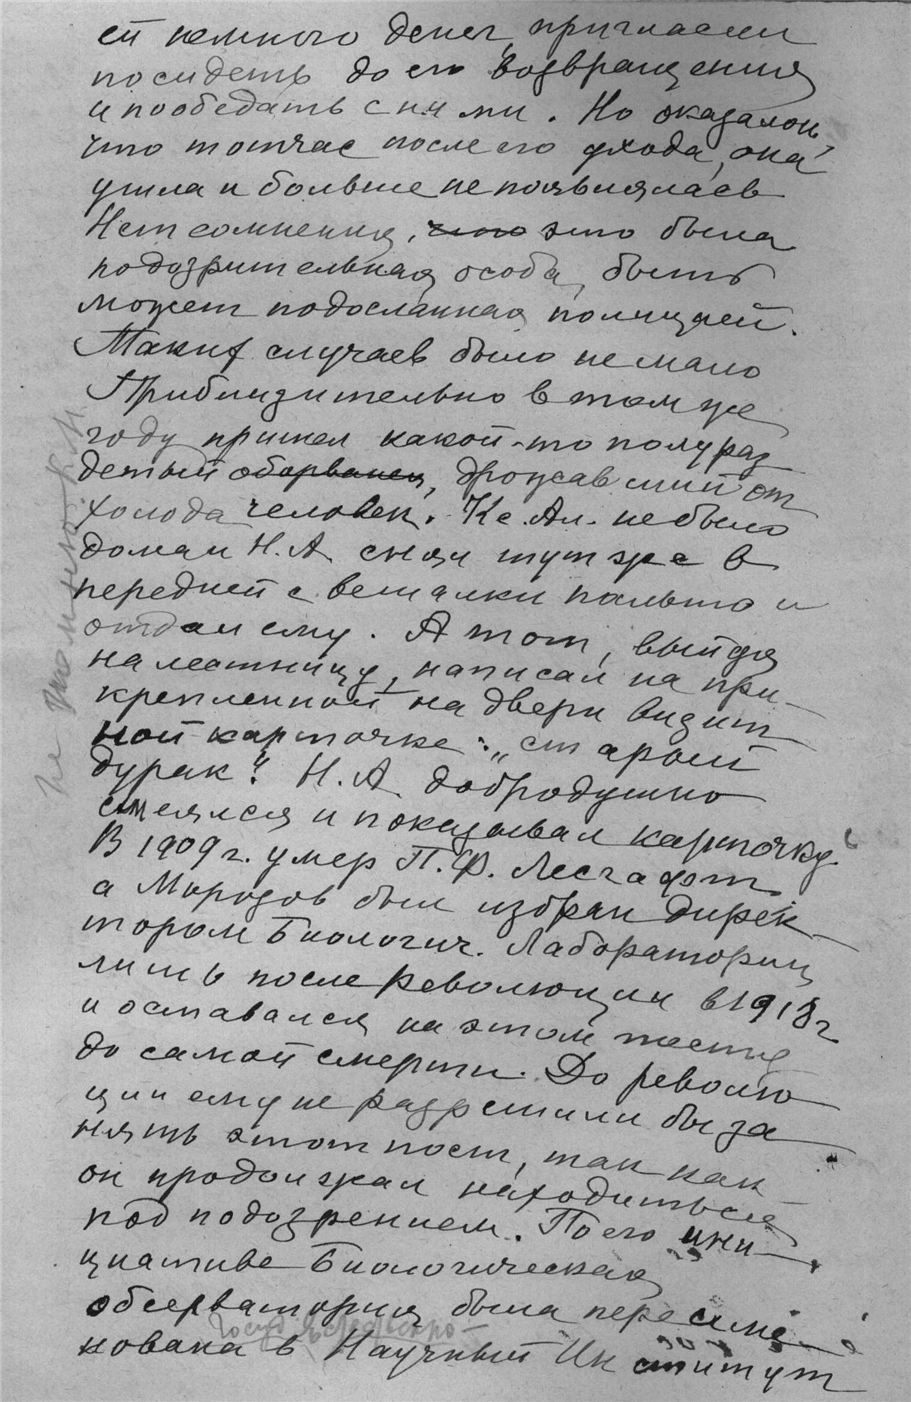 ей немного денег, пригласил
посидеть до его возвращения
и пообедать с ними. Но оказалось,
что тотчас после его ухода, она
ушла и больше не появлялась
Нет сомнения, что это была
подозрительная особа, быть
может подосланная полицией.
Таких случаев было не мало
Приблизительно в том же
году пришел какой-то полураз
детый оборванец, дрожавший от
холода человек. Кс. Ал. не было
дома и Н.А. снял тут же в
передней с вешалки пальто и
отдал ему. А тот, выйдя
на лестницу, написал на при-
крепленной на двери визит
ной карточке: „старый
дурак". Н.А. добродушно
смеялся и показывал карточку.
В 1909 г. умер П.Ф. Лесгафт
а Морозов был избран дирек-
тором Биологич. Лаборатории
лишь после революции в 1918 г
и оставался на этом посту
до самой смерти. До револю
ции ему не разрешили бы за
нять этот пост, так как
он продолжал находиться
под подозрением. По его ини-
циативе Биологическая
обсерватория была переиме
нована в Научный Институт
не